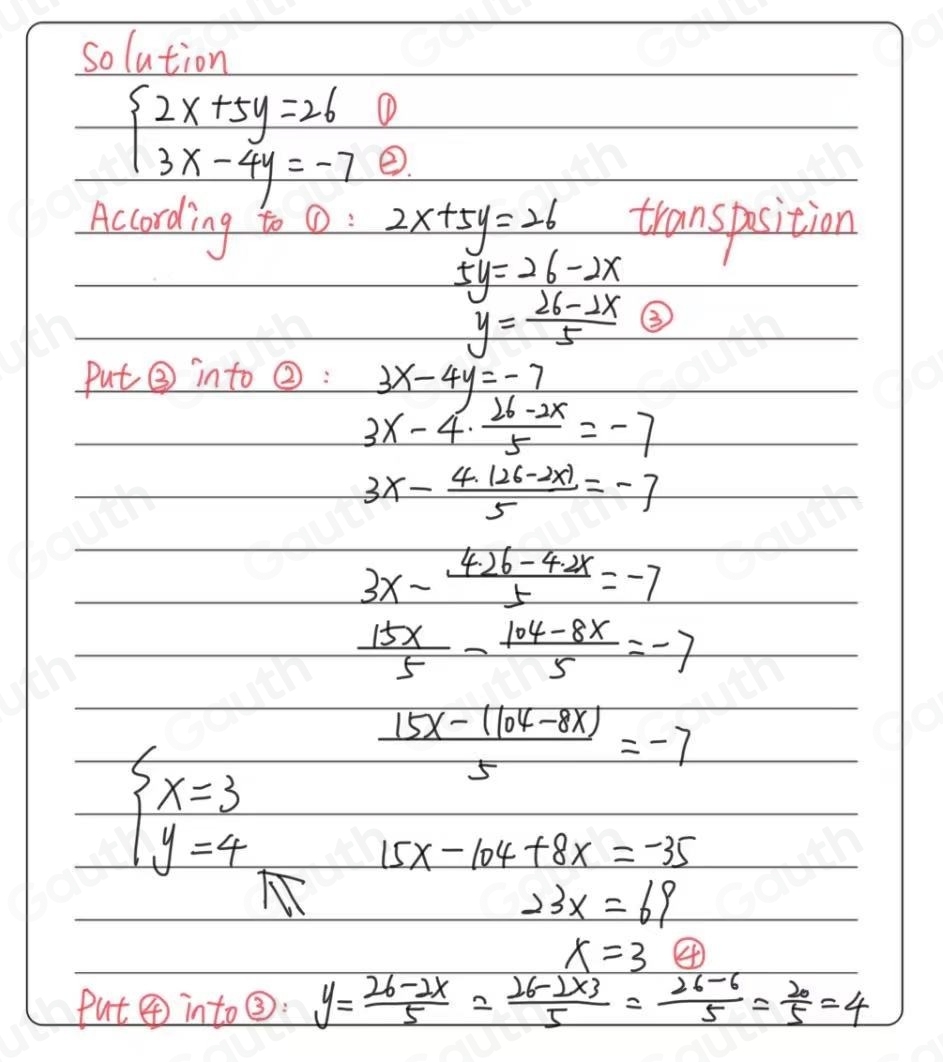 Solution
{ 2x+5y=26 ①
3x-4y=-7 ②.
According to ①: 2x+5y=26 transposition
5y=26-2x
y=\frac{26-2x}{5} ③
Put ③ into ②: 3x-4y=-7
3x-4·\frac{26-2x}{5}=-7
3x-\frac{4·(26-2x)}{5}=-7
3x-\frac{4·26-4·2x}{5}=-7
\frac{15x}{5}-\frac{104-8x}{5}=-7
\frac{15x-(104-8x)}{5}=-7
{ x=3
y=4
15x-104+8x=-35
23x=69
x=3 ④
Put ④ into ③: y=\frac{26-2x}{5}=\frac{26-2×3}{5}=\frac{26-6}{5}=\frac{20}{5}=4
Gauth